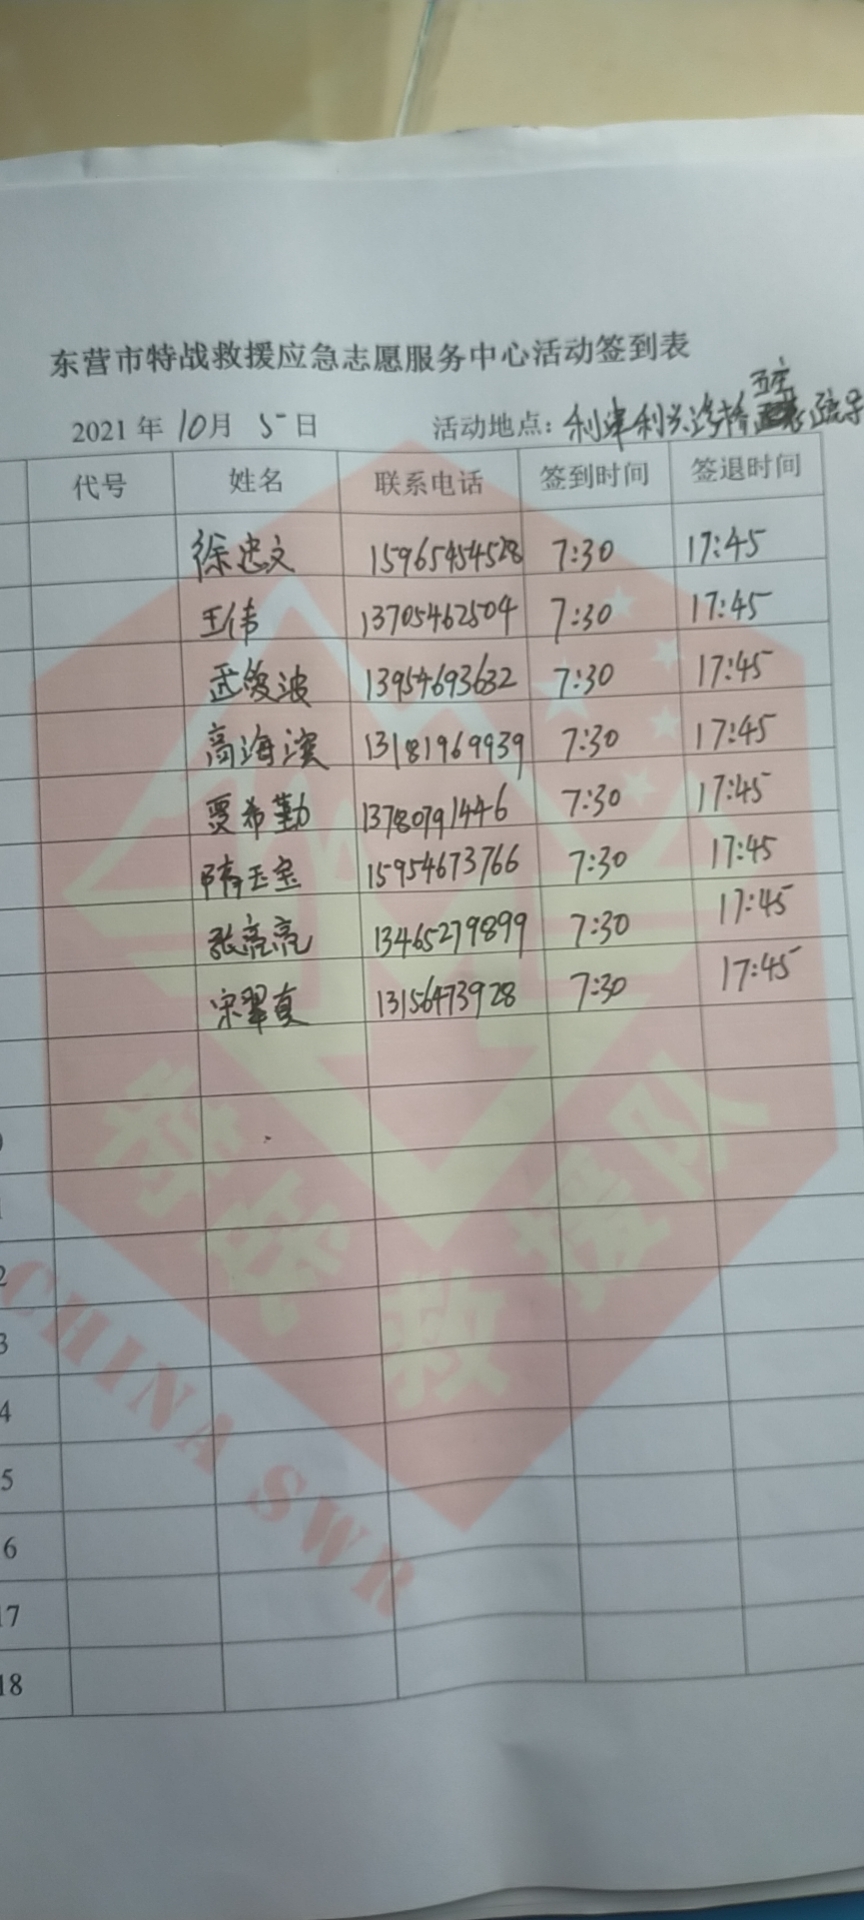 东营市特战救援应急志愿服务中心活动签到表
2021 年 10月 5日 活动地点：利津利兴浮桥 疏导
代号 姓名 联系电话 签到时间 签退时间
徐忠文 15965454528 7:30 17:45
王伟 13705462504 7:30 17:45
武俊波 13954693632 7:30 17:45
高海滨 13181969939 7:30 17:45
贾希勤 13780791446 7:30 17:45
隋玉宝 15954673766 7:30 17:45
张亮亮 13465279899 7:30 17:45
宋翠真 13156473928 7:30 17:45
2
3
4
5
6
17
18
特战救援队
CHINA SWR